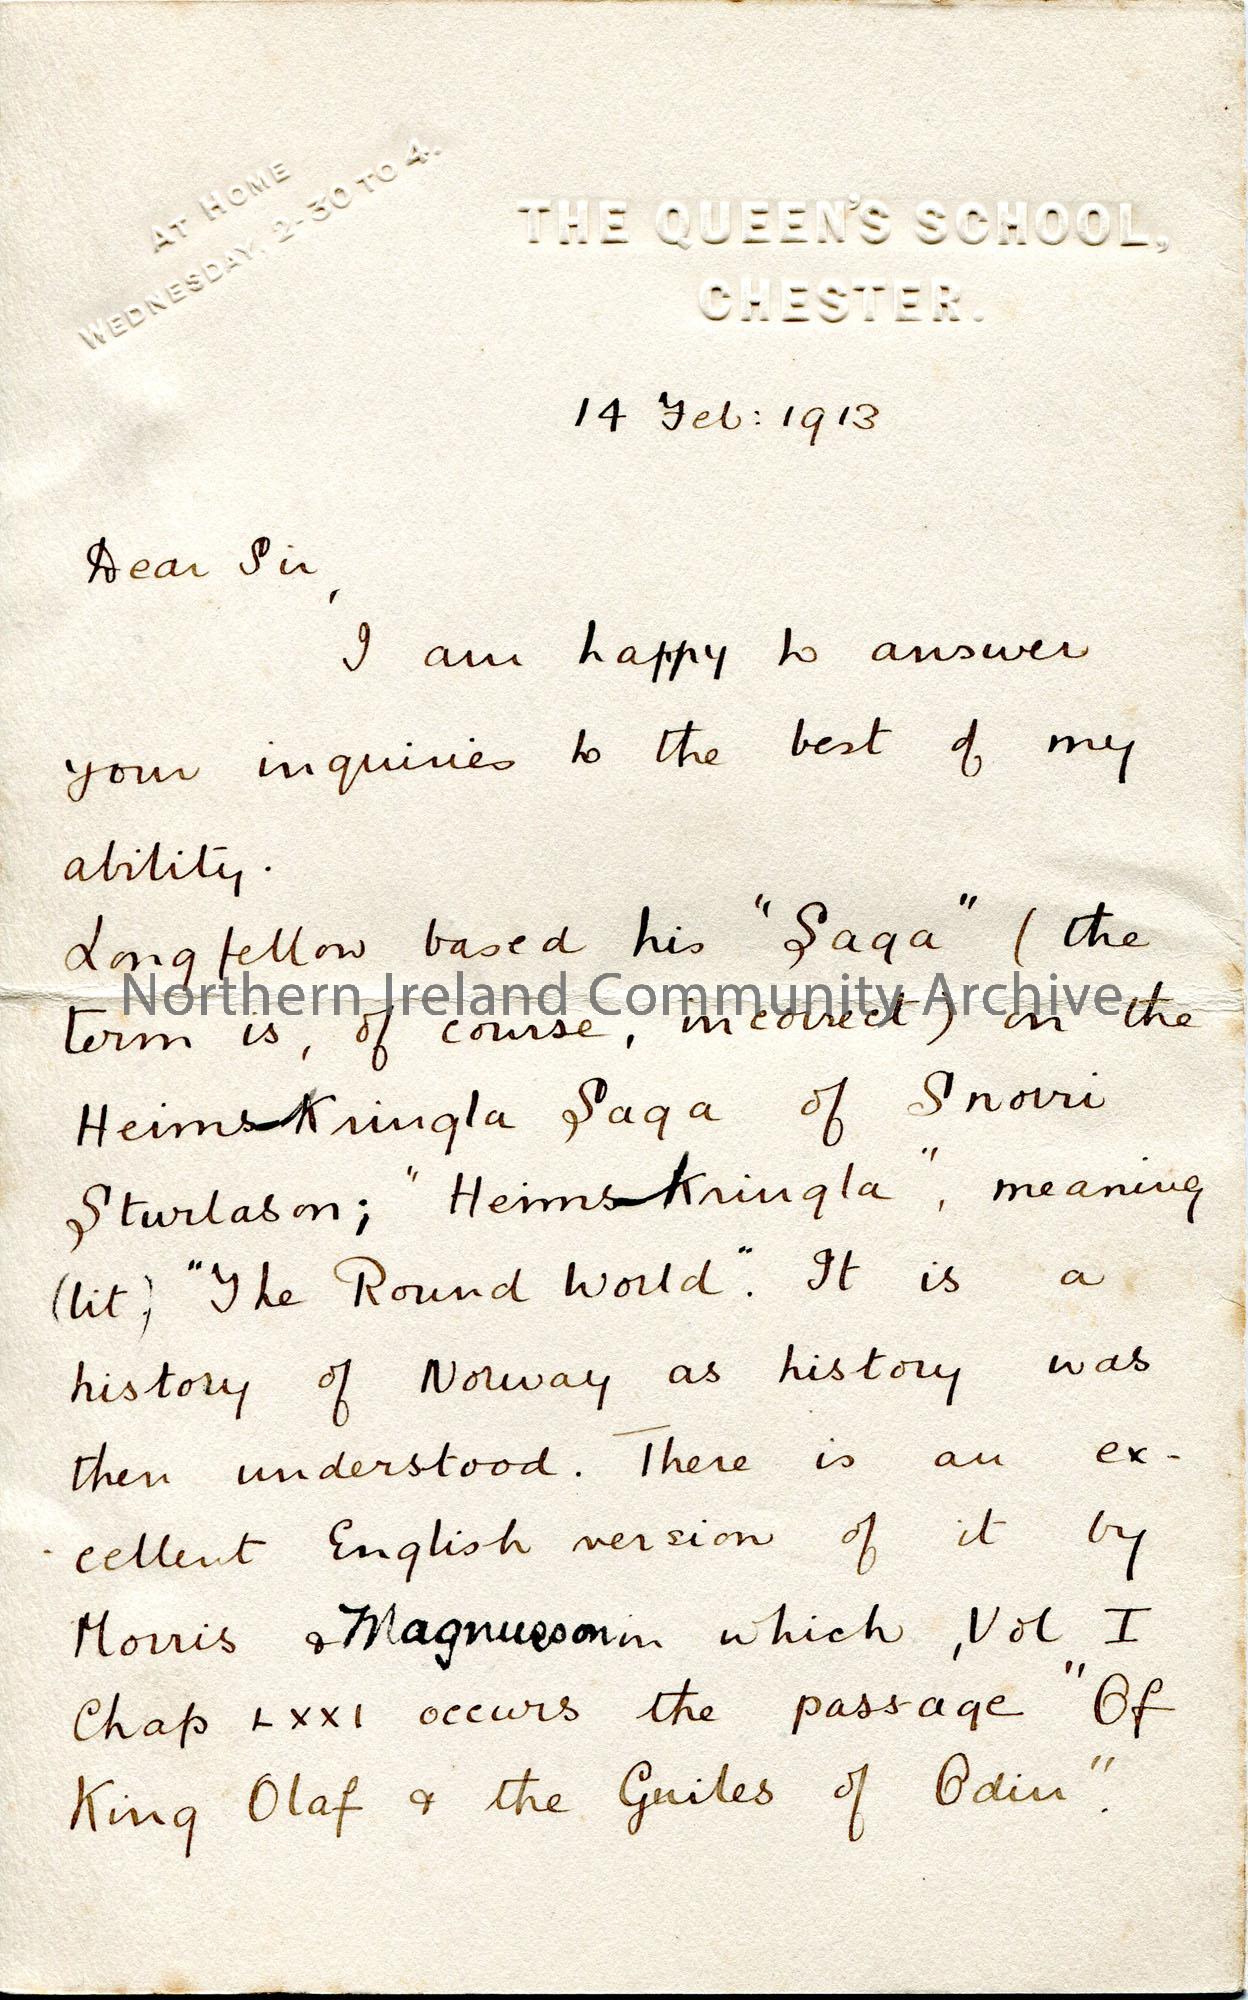 AT HOME
WEDNESDAY, 2-30 TO 4.
THE QUEEN'S SCHOOL,
CHESTER.
14 Feb: 1913
Dear Sir,
I am happy to answer
your inquiries to the best of my
ability.
Longfellow based his "Saga" (the
Northern Ireland Community Archive
term is, of course, incorrect) on the
Heims-Kringla Saga of Snorri
Sturlason; "Heims-Kringla", meaning
(lit) "The Round World". It is a
history of Norway as history was
then understood. There is an ex-
cellent English version of it by
Morris & Magnusson in which, Vol I
Chap LXXI occurs the passage "Of
King Olaf & the Guiles of Odin".